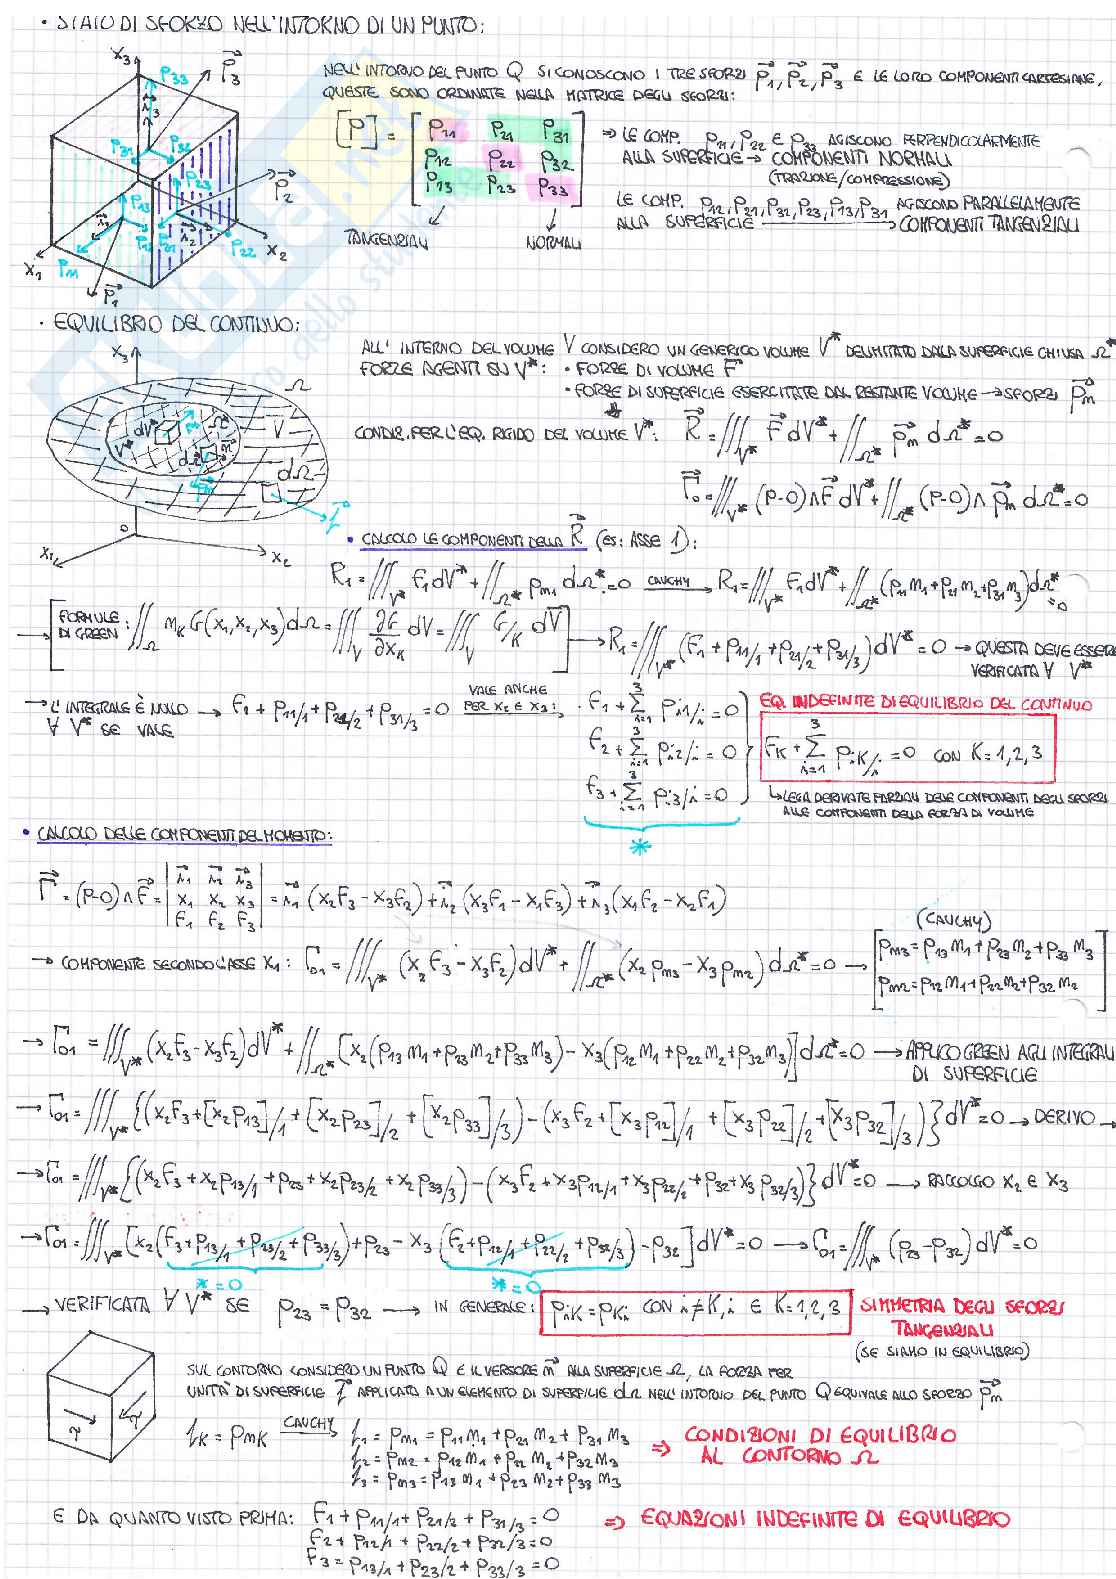 • STATO DI SFORZO NELL'INTORNO DI UN PUNTO:
NELL'INTORNO DEL PUNTO Q SI CONOSCONO I TRE SFORZI p⃗1, p⃗2, p⃗3 E LE LORO COMPONENTI CARTESIANE,
QUESTE SONO ORDINATE NELLA MATRICE DEGLI SFORZI:
[P] = [P11 P21 P31
P12 P22 P32
P13 P23 P33]
⇒ LE COMP. P11, P22 E P33 AGISCONO PERPENDICOLARMENTE
ALLA SUPERFICIE → COMPONENTI NORMALI
(TRAZIONE/COMPRESSIONE)
LE COMP. P12, P21, P32, P23, P13, P31 AGISCONO PARALLELAMENTE
ALLA SUPERFICIE → COMPONENTI TANGENZIALI
TANGENZIALI NORMALI
X3 P33 P⃗3 P31 P32 P23 P⃗2 P13 P12 P21 P22 P11 P⃗1 X1 X2
• EQUILIBRIO DEL CONTINUO:
ALL'INTERNO DEL VOLUME V CONSIDERO UN GENERICO VOLUME V* DELIMITATO DALLA SUPERFICIE CHIUSA Ω*
FORZE AGENTI SU V*: • FORZE DI VOLUME F⃗
• FORZE DI SUPERFICIE ESERCITATE DAL RESTANTE VOLUME → SFORZI p⃗m
CONDIZ. PER L'EQ. RIGIDO DEL VOLUME V*: R⃗ = ∭V* F⃗ dV* + ∬Ω* p⃗m dΩ* = 0
Γ⃗0 = ∭V* (P-O)∧F⃗ dV* + ∬Ω* (P-O)∧p⃗m dΩ* = 0
X3 Ω V dV* V* Ω* dΩ* dΩ f⃗ O X1 X2
• CALCOLO LE COMPONENTI DELLA R⃗ (ES: ASSE 1):
R1 = ∭V* F1 dV* + ∬Ω* Pm1 dΩ* = 0 CAUCHY → R1 = ∭V* F1 dV* + ∬Ω* (P11 m1 + P21 m2 + P31 m3) dΩ* = 0
→ [FORMULE DI GREEN: ∬Ω mK G(X1,X2,X3) dΩ = ∭V ∂G/∂XK dV = ∭V G/K dV] → R1 = ∭V* (F1 + P11/1 + P21/2 + P31/3) dV* = 0 → QUESTA DEVE ESSERE
VERIFICATA ∀ V*
→ L'INTEGRALE È NULLO ∀ V* SE VALE → F1 + P11/1 + P21/2 + P31/3 = 0 VALE ANCHE PER X2 E X3:
F1 + ∑i=1^3 Pi1/i = 0
F2 + ∑i=1^3 Pi2/i = 0
F3 + ∑i=1^3 Pi3/i = 0
*
EQ. INDEFINITE DI EQUILIBRIO DEL CONTINUO
FK + ∑i=1^3 PiK/i = 0 CON K=1,2,3
↳ LEGA DERIVATE PARZIALI DELLE COMPONENTI DEGLI SFORZI
ALLE COMPONENTI DELLA FORZA DI VOLUME
• CALCOLO DELLE COMPONENTI DEL MOMENTO:
Γ⃗ = (P-O)∧F⃗ = |i⃗1 i⃗2 i⃗3; X1 X2 X3; F1 F2 F3| = i⃗1 (X2F3 - X3F2) + i⃗2 (X3F1 - X1F3) + i⃗3 (X1F2 - X2F1)
→ COMPONENTE SECONDO L'ASSE X1: Γ01 = ∭V* (X2F3 - X3F2) dV* + ∬Ω* (X2 Pm3 - X3 Pm2) dΩ* = 0 →
(CAUCHY)
[Pm3 = P13 m1 + P23 m2 + P33 m3
Pm2 = P12 m1 + P22 m2 + P32 m2]
→ Γ01 = ∭V* (X2F3 - X3F2) dV* + ∬Ω* [X2(P13 m1 + P23 m2 + P33 m3) - X3(P12 m1 + P22 m2 + P32 m3)] dΩ* = 0 → APPLICO GREEN AGLI INTEGRALI
DI SUPERFICIE
→ Γ01 = ∭V* {(X2F3 + [X2P13]/1 + [X2P23]/2 + [X2P33]/3) - (X3F2 + [X3P12]/1 + [X3P22]/2 + [X3P32]/3)} dV* = 0 → DERIVO →
→ Γ01 = ∭V* {(X2F3 + X2P13/1 + P23 + X2P23/2 + X2P33/3) - (X3F2 + X3P12/1 + X3P22/2 + P32 + X3P32/3)} dV* = 0 → RACCOLGO X2 E X3
→ Γ01 = ∭V* [X2(F3 + P13/1 + P23/2 + P33/3) + P23 - X3(F2 + P12/1 + P22/2 + P32/3) - P32] dV* = 0 → Γ01 = ∭V* (P23 - P32) dV* = 0
* = 0 * = 0
→ VERIFICATA ∀ V* SE P23 = P32 → IN GENERALE: PiK = PKi CON i ≠ K, i E K = 1,2,3 SIMMETRIA DEGLI SFORZI
TANGENZIALI
(SE SIAMO IN EQUILIBRIO)
τ τ
SUL CONTORNO CONSIDERO UN PUNTO Q E IL VERSORE m⃗ ALLA SUPERFICIE Ω, LA FORZA PER
UNITÀ DI SUPERFICIE f⃗ APPLICATA A UN ELEMENTO DI SUPERFICIE dΩ NELL'INTORNO DEL PUNTO Q EQUIVALE ALLO SFORZO p⃗m
fK = PmK CAUCHY → f1 = Pm1 = P11 m1 + P21 m2 + P31 m3
f2 = Pm2 = P12 m1 + P22 m2 + P32 m3
f3 = Pm3 = P13 m1 + P23 m2 + P33 m3
⇒ CONDIZIONI DI EQUILIBRIO
AL CONTORNO Ω
E DA QUANTO VISTO PRIMA: F1 + P11/1 + P21/2 + P31/3 = 0 ⇒ EQUAZIONI INDEFINITE DI EQUILIBRIO
F2 + P12/1 + P22/2 + P32/3 = 0
F3 = P13/1 + P23/2 + P33/3 = 0